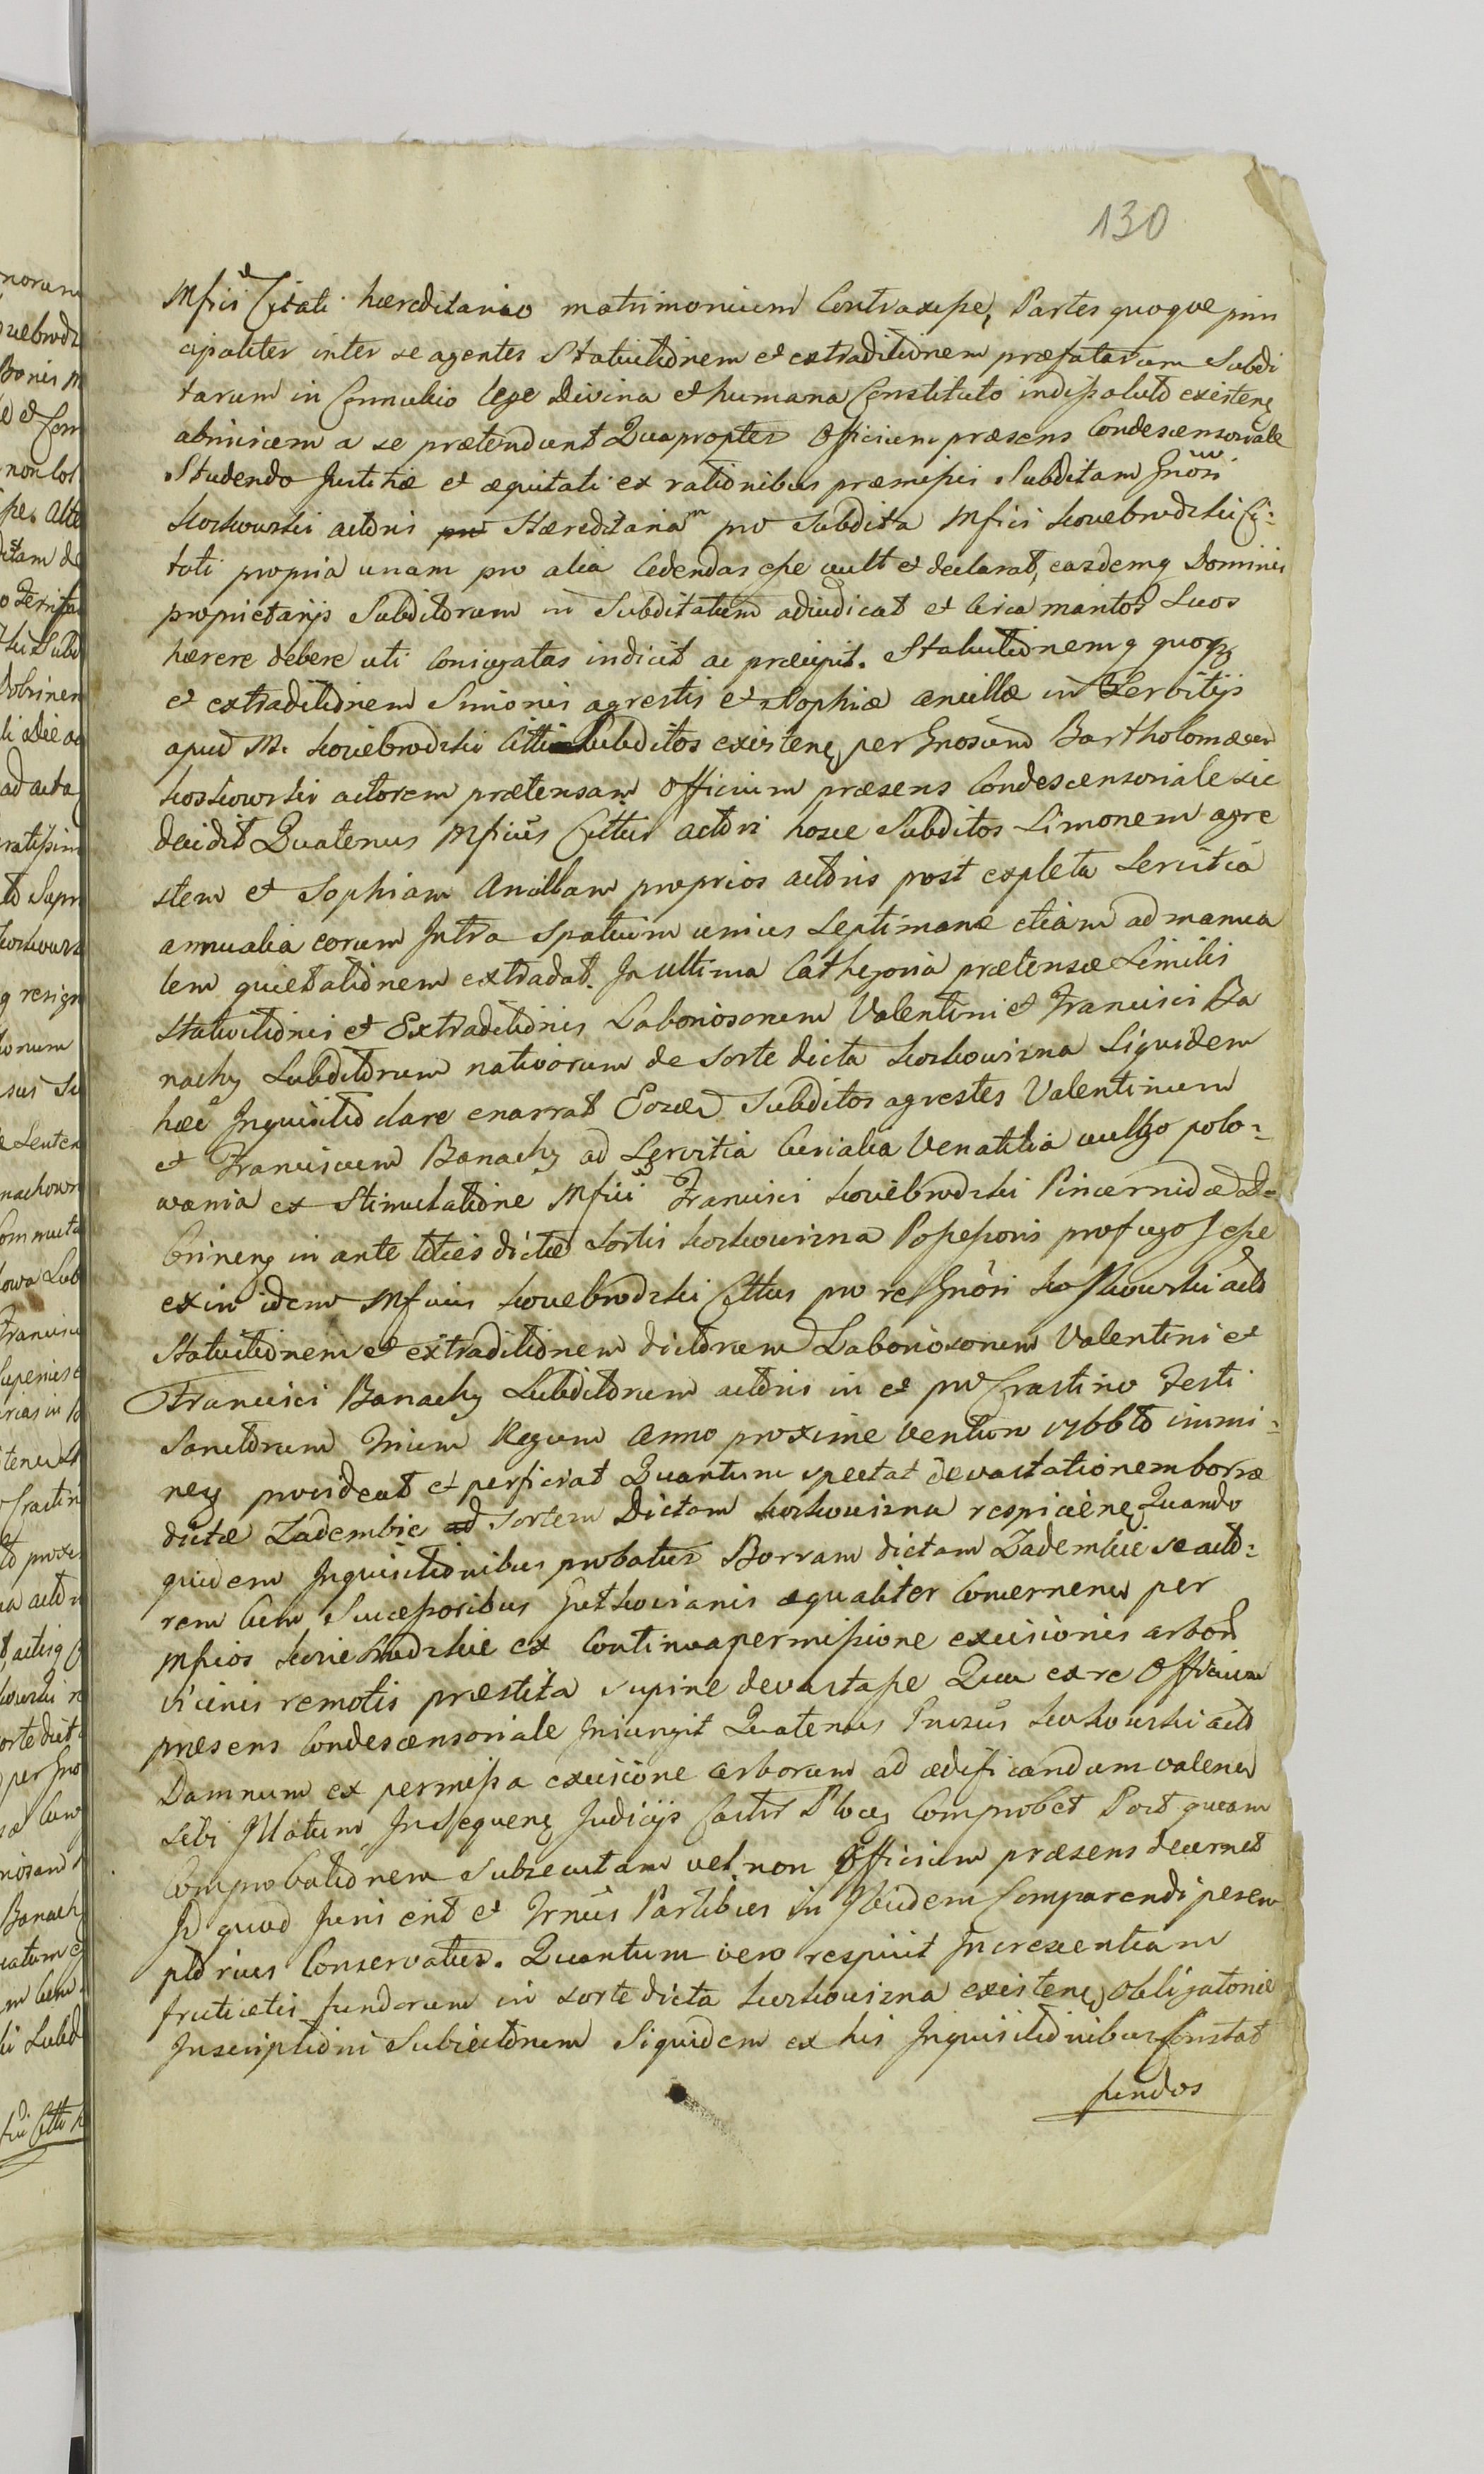 130
Mfici Citati hæreditario matrimonium Contraxisse, Partes quoque prin
cipaliter inter se agentes Statuitionem et extraditionem præfatarum Subdi
tarum in Connubio lege Divina et humana Constituto indissoluto existenꝫ
abinvicem a se prætendunt Quapropter Officium præsens Condescensoriale
Studendo Justitiæ et æquitati ex rationibus præmissis Subditam Gñosi
Koskowski actoris Hæreditariam pro Subdita Mfici Kowebrodzki Ci-
tati propria unam pro alia Cedendas esse vult et declarat, easdemq Dominis
proprietarijs Subditorum in Subditatum adiudicat et Circa maritos Suos
hærere debere uti Coniugatas indicit ac præcipit. Statuitionemq quoqꝫ
et extraditionem Simonis agrestis et Sophiæ ancillæ in Servitijs
apud M. Kowiebrodzki Cittum Subditos existenꝫ per Gnosum Bartholomæum
Koskowski actorem prætensam Officium præsens Condescensoriale sic
decidit Quatenus Mficus Cittus actori hosce Subditos Simonem agre
stem et Sophiam Ancillam proprios actoris post expleta Servitia
annualia eorum Intra Spatium unius Septimanæ etiam ad manua
lem quietationem extradat. In ultima Cathegoria prætensæ Similis
Statuitionis et Extraditionis Laboriosorum Valentini et Francisci Ba
nachꝫ Subditorum nativorum de Sorte dicta Koskowizna Siquidem
hæc Inquisitio clare enarrat Eosdem Subditos agrestes Valentinum
et Franciscum Banachꝫ ad Servitia Curialia Venatilia vulgo polo-
wania ex Stimulatione Mfici Francisci Kowiebrodzki Pincernidæ Do
brinenꝫ in ante toties dictæ Sortis Koskowizna Possessoris profugos esse
exin idem Mficus Kowebrodzki Cittus pro re Gnosi Koskowski acto
Statuitionem et extraditionem dictorum Laboriosorum Valentini et
Francisci Banachꝫ Subditorum actoris in et pro Crastino Festi
Sanctorum Trium Regum Anno proxime venturo 1766to immi-
nenꝫ provideat et perficiat Quantum spectat devastationem borræ
dictæ Zadembie Sortem Dictam Koskowizna respicienꝫ Quando
quidem Inquisitionibus probatur Borram dictam Zadembie se acto-
rem Cum Successoribus Gutkowianis æqualiter Concernenꝫ per
Mficos Kowiebrodzkie ex Continua permissione excisionis arborum
vicinis remotis præstita supine devastasse Qua ex re Officium
præsens Condescensoriale Iniungit Quatenus Gnosus Koskowski acto
Damnum ex permissa excisione arborum ad ædificandum valenꝫ
Sibi Illatum In Sequenꝫ Judicijs Castr Plocꝫ Comprobet Post quam
Comprobationem Subsecutam vel non Officium præsens decernet
Id quod Juris erit et Trnus Partibus in Ibidem Comparendi
Conservatur. Quantum vero respicit Increscentiam
fruticetis fundorum in Sorte dicta Koskowizna existenꝫ Obligatoriæ
Inscriptioni Subiectorum Siquidem ex his Inquisitionibus Constat
fundos